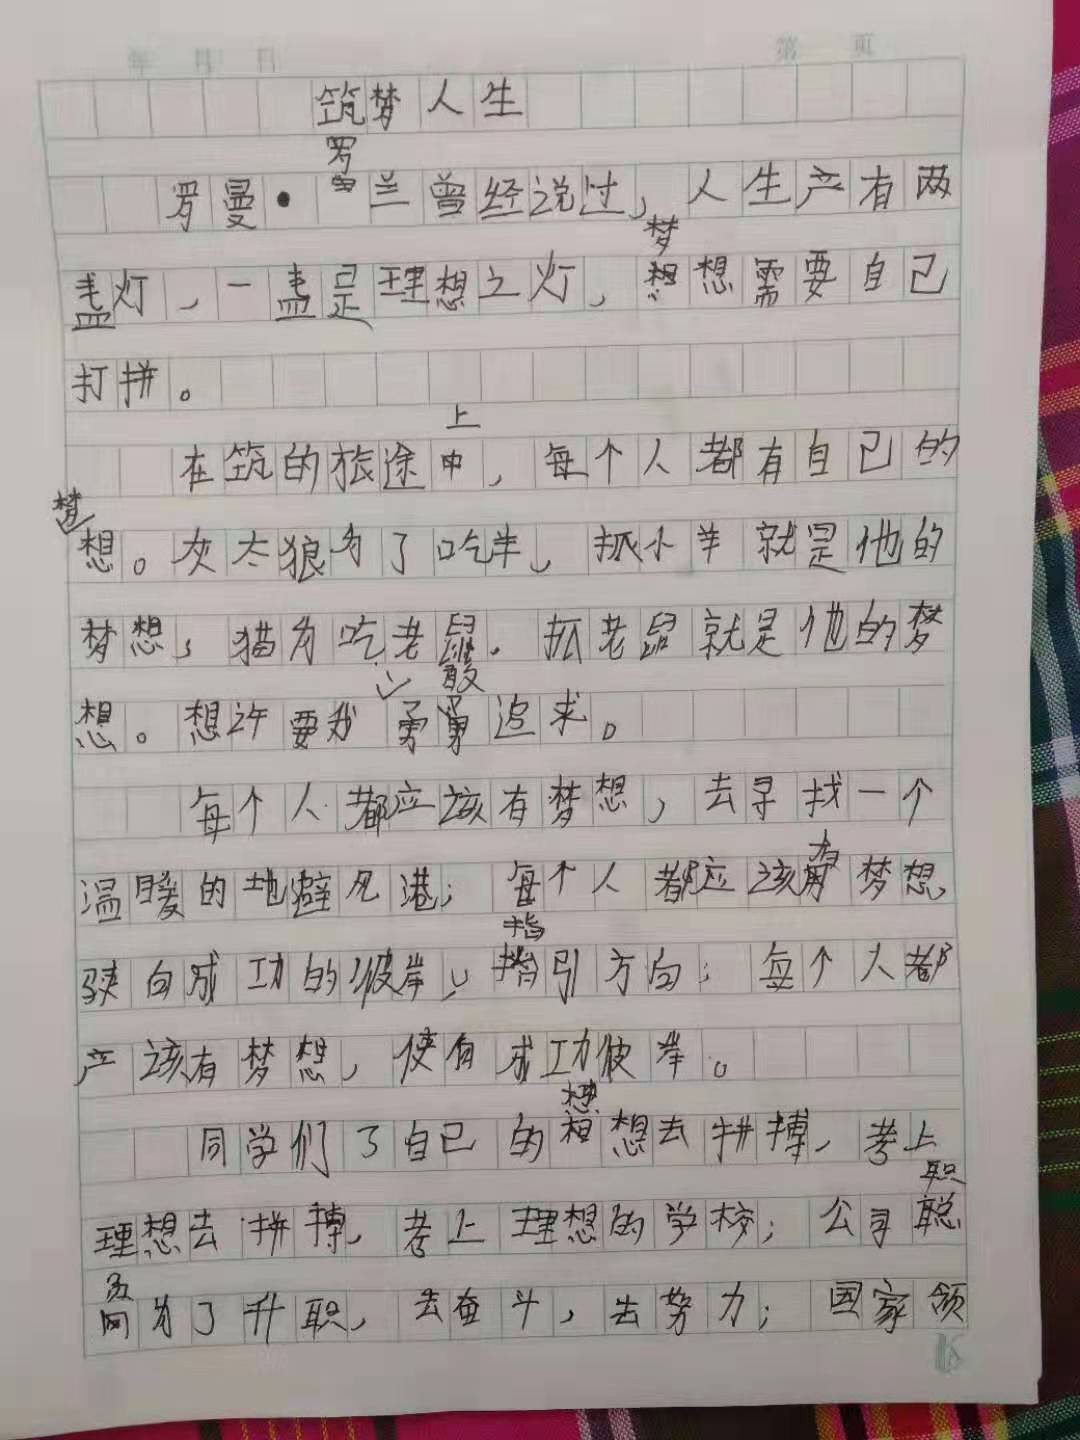 年 月 日 第 页
筑梦人生
罗曼·罗兰曾经说过，人生产有两
盏灯，一盏是理想之灯，梦想需要自己
打拼。
在筑的旅途上，每个人都有自己的
梦想。灰太狼为了吃羊，抓小羊就是他的
梦想；猫为吃老鼠，抓老鼠就是他的梦
想。想许要我勇敢追求。
每个人都应该有梦想，去寻找一个
温暖的地避风港；每个人都应该有梦想，
驶向成功的彼岸，指引方向；每个人都
产该有梦想，使自成功使岸。
同学们了自己的想想去拼搏，考上
理想去拼搏，考上理想的学校；公司职
员为了升职，去奋斗，去努力；国家领